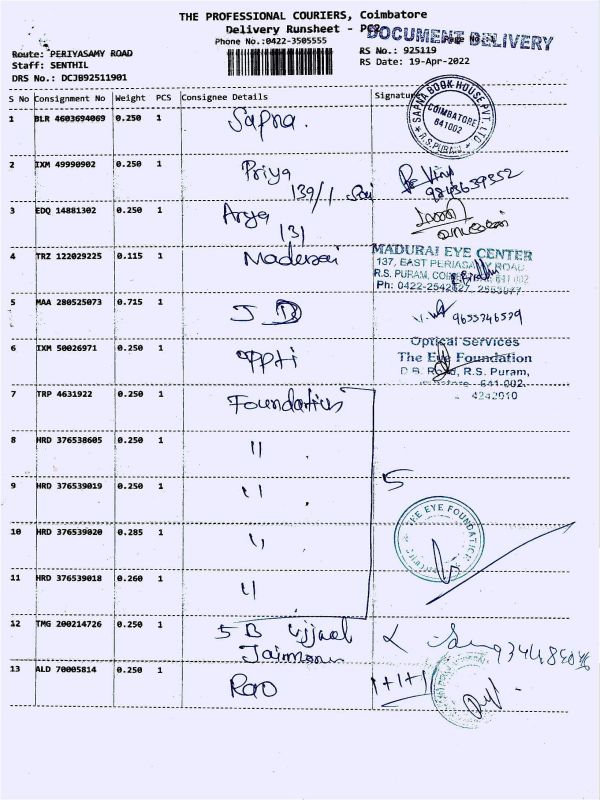 THE PROFESSIONAL COURIERS, Coimbatore
Delivery Runsheet - PCS
DOCUMENT DELIVERY
Phone No.:0422-3505555
Route: PERIYASAMY ROAD
RS No.: 925119
Staff: SENTHIL
RS Date: 19-Apr-2022
DRS No.: DCJB92511901
S No Consignment No Weight PCS Consignee Details Signature
1 BLR 4603694069 0.250 1 Sapna.
SAPNA BOOK HOUSE PVT. LTD.
COIMBATORE
641002
R.S. PURAM
2 IXM 49990902 0.250 1 Priya
139/1
9843639352
3 EDQ 14881302 0.250 1 Arya
131
4 TRZ 122029225 0.115 1 Madurai
MADURAI EYE CENTER
137, EAST PERIASAMY ROAD
R.S. PURAM, 641 002
Ph: 0422-2542827,
5 MAA 280525073 0.715 1 J
6 IXM 50026971 0.250 1
Optical Services
The Eye Foundation
D.B. Road, R.S. Puram,
641-002.
4242010
7 TRP 4631922 0.250 1 Foundation
8 HRD 376538605 0.250 1 "
9 HRD 376539019 0.250 1 "
5
10 HRD 376539020 0.285 1 "
THE EYE FOUNDATION
11 HRD 376539018 0.260 1 "
12 TMG 200214726 0.250 1 5 B
13 ALD 70005814 0.250 1 Rao
1+1+1